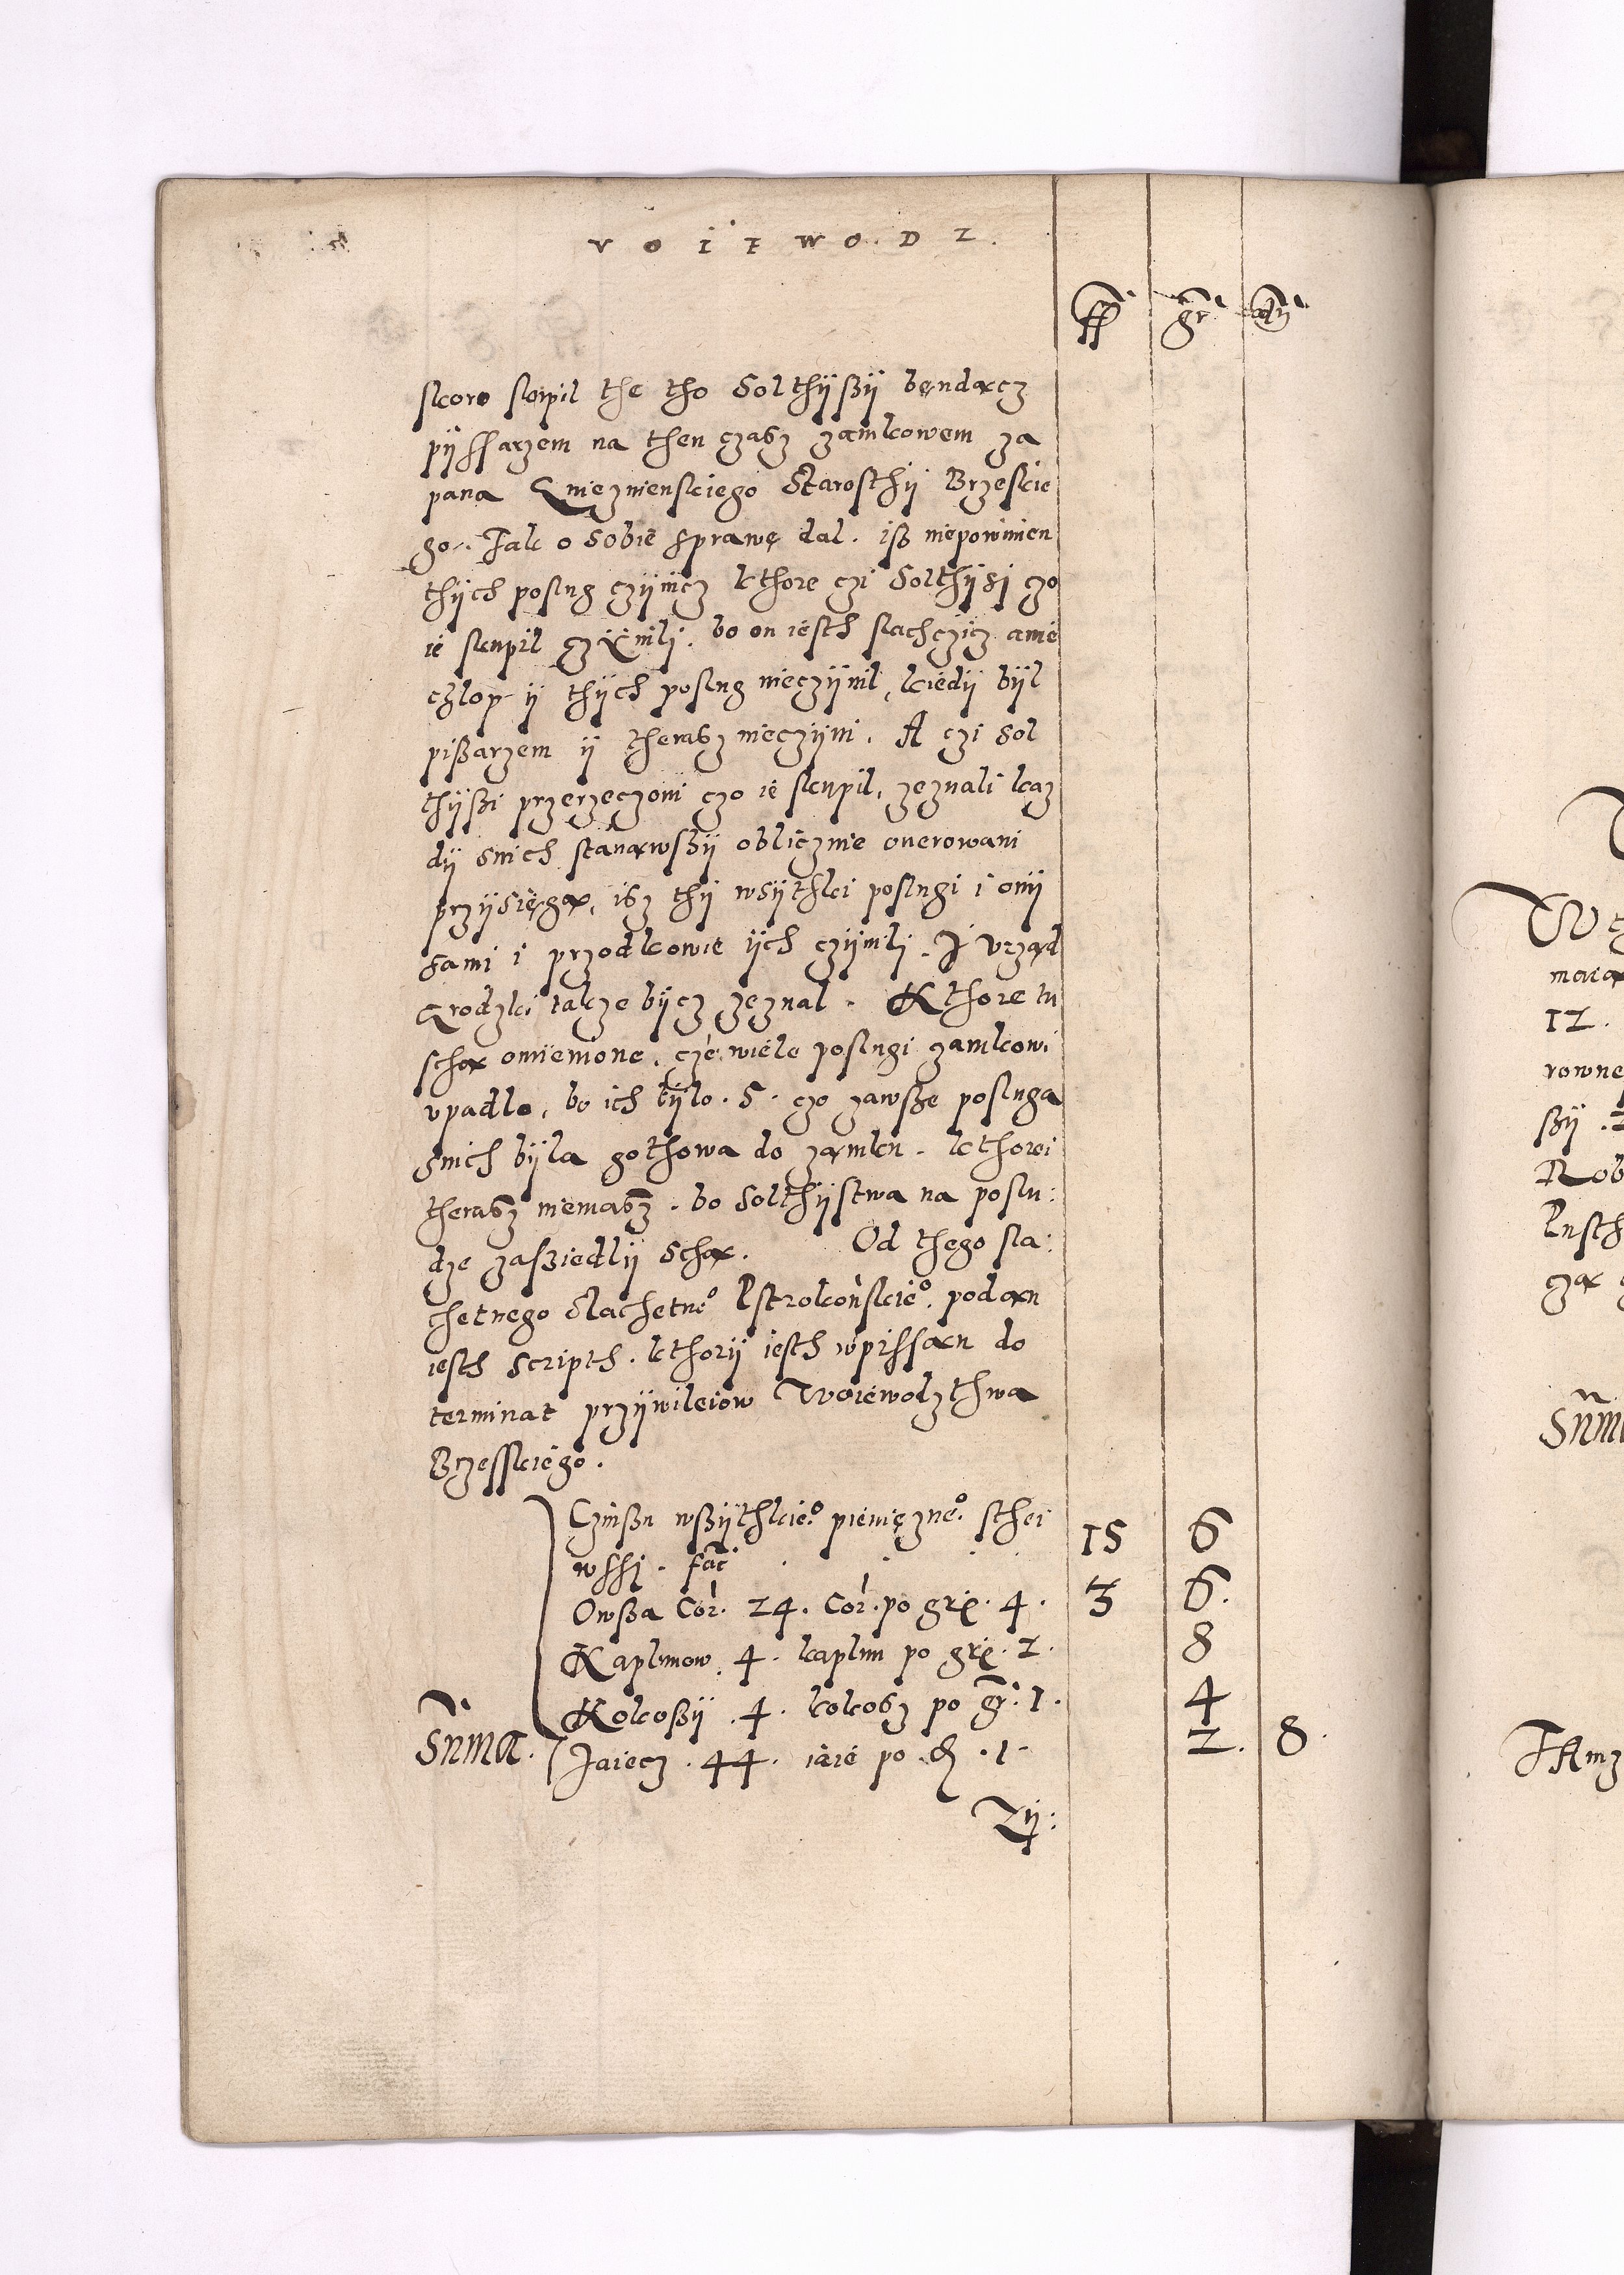 V O I E W O D Z.
ff gr dn
skoro skupil the tho Solthyßy będącz
pyssarzem na then czasz zamkowem za
pana Gnieznienskiego Starosthy Brzeskie
go. Jak o sobie sprawę dal. iß niepowinien
thych poslug czynicz kthore czi Solthysi czo
ie skupil czÿnili. bo on iesth slachczicz a nie
chlop y thych poslug nieczynil, kiedy byl
pißarzem y therasz nieczyni. A czi Sol
thyßi przerzeczoni czo ie skupil, zeznali kaz
dy snich stanąwßy oblicznie onerowani
przysięgą, isz thy wsythki poslugi i ony
sami i przodkowie ych czynili. I vrząd
Grodzki takze bycz zeznal. Kthore tu
schą omienione, cze wiele poslugi zamkowi
vpadlo, bo ich bylo .5. czo zawße posluga
snich byla gothowa do zamku. kthorei
therasz niemasz. bo Solthystwa na poslu:
dze zaßiedly schą. Od thego sla:
chetnego Slachetneo Ostrokońskieo. podan
iesth scripth. kthory iesth wpissan do
terminat przywileiow Woiewodzthwa
Brzesskiego.
Czinßu wßythkieo. pienięzneo. sthei
wssi. fac 15 6
Owßa Cor. 24. Cor. po grx. 4. 3 6.
Kaplunow. 4. kaplun po grx. 2. 8
Kokoßy .4. kokosz po gr. 1. 4
Sūma. Jaiecz .44. iaie po d .1. 2. 8.
Zy: